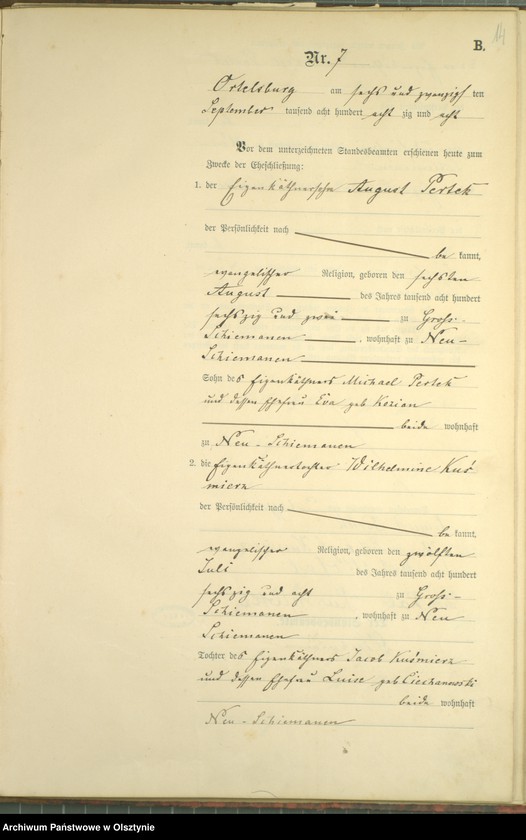 14
B.
Nr. 7
Ortelsburg am sechs und zwanzigsten
September tausend acht hundert acht zig und acht
Vor dem unterzeichneten Standesbeamten erschienen heute zum
Zwecke der Eheschließung:
1. der Eigenkäthnersohn August Pertek
der Persönlichkeit nach
be kannt,
evangelischer Religion, geboren den sechsten
August des Jahres tausend acht hundert
sechszig und zwei zu Gross-
Schiemanen, wohnhaft zu Neu-
Schiemanen
Sohn des Eigenkäthners Michael Pertek
und dessen Ehefrau Eva geb Kozian
beide wohnhaft
zu Neu-Schiemanen
2. die Eigenkäthnertochter Wilhelmine Kuś
mierz
der Persönlichkeit nach
be kannt,
evangelischer Religion, geboren den zwölften
Juli des Jahres tausend acht hundert
sechszig und acht zu Gross-
Schiemanen, wohnhaft zu Neu
Schiemanen
Tochter des Eigenkäthners Jacob Kuśmierz
und dessen Ehefrau Luise geb Ciechanowski
beide wohnhaft
Neu-Schiemanen
Archiwum Państwowe w Olsztynie